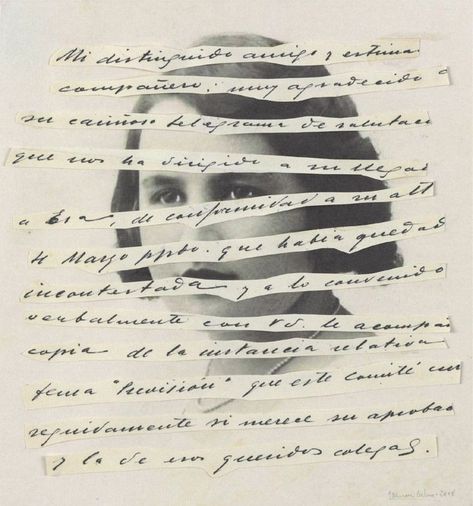 Mi distinguido amigo y estima
compañero: muy agradecido a
su cariñoso telegrama de salutac
que nos ha dirigido a su llega
a Esa, de conformidad a su att
4 Marzo ppdo. que habia quedad
incontestada y a lo convenido
verbalmente con Vd. le acompa
copia de la instancia relativa
tema "Previsión" que este Comité
seguidamente si merece su aprobac
y la de esos queridos colegas.